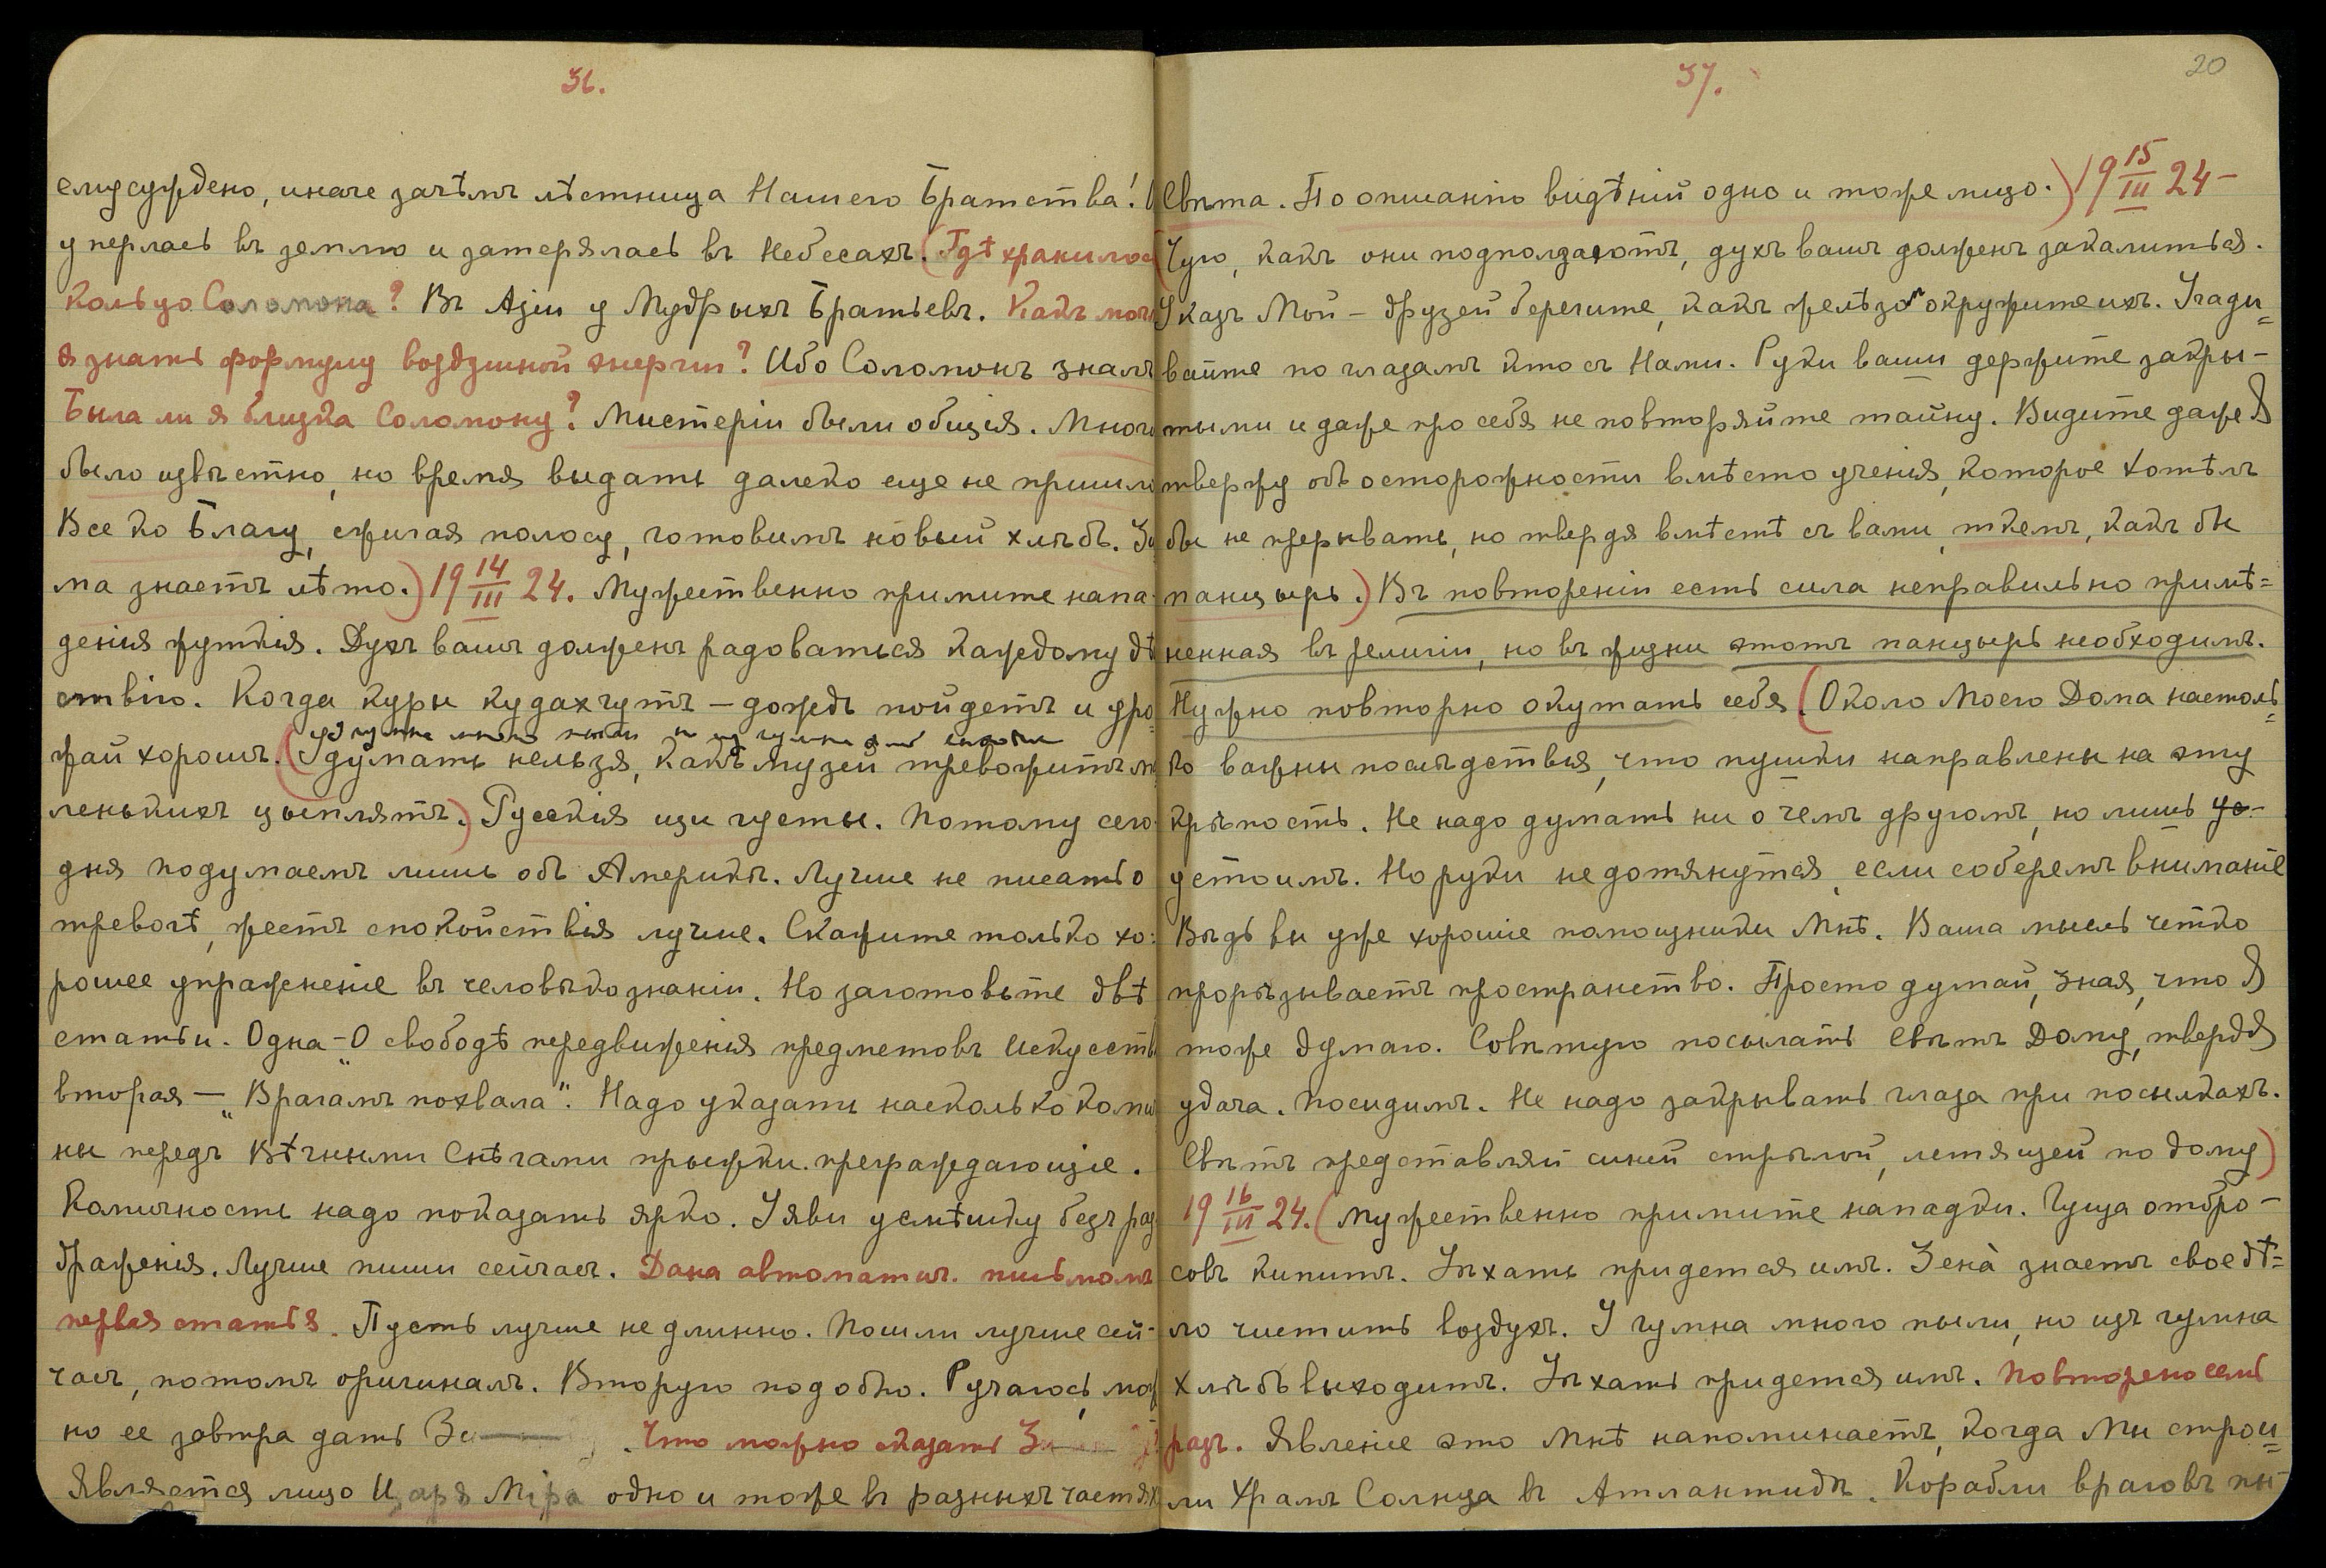 36.
ему суждено, иначе зачѣмъ лѣстница Нашего Братства!
уперлась въ землю и затерялась въ Небесахъ. (Гдѣ хранилось
кольцо Соломона? Въ Азіи у Мудрыхъ Братьевъ. Какъ могл
я знать формулу воздушной энергіи? Ибо Соломонъ зналъ
Была ли я близка Соломону? Мистеріи были общія. Много
было извѣстно, но время выдать далеко еще не пришло
Все ко Благу, сжигая полосу, готовимъ новый хлѣбъ. Зи
ма знаетъ лѣто.) 19 14/III 24. Мужественно примите напа-
денія жуткія. Духъ вашъ долженъ радоваться каждому дѣ
ствію. Когда куры кудахчутъ – дождь пойдетъ и уро
У гумна много пыли но из гумна
жай хорошъ. (Удумать нельзя, какъ музей тревожитъ ма
ленькихъ цыплятъ.) Русскія щи густы. Потому сего-
дня подумаемъ лишь объ Америкѣ. Лучше не писать о
тревогѣ, жестъ спокойствія лучше. Скажите только хо-
рошее упражненіе въ человѣкознаніи. Но заготовьте двѣ
статьи. Одна – „О свободѣ передвиженія предметовъ искусств
вторая – „Врагамъ похвала". Надо указать насколько коми
ны передъ Вѣчными Снѣгами прыжки преграждающіе.
Комичность надо показать ярко. Уяви усмѣшку безъ раз
драженія. Лучше пиши сейчасъ. Дана автоматич. письмомъ
первая статья. Пусть лучше не длинно. Пошли лучше сей-
часъ, потомъ оригиналъ. Вторую подобно. Ручаюсь, мож
но ее завтра дать За
Что можно сказать З
Является лицо Царя Міра одно и тоже въ разныхъ частях
37.
20
Свѣта. По описанію видѣній одно и тоже лицо.) 19 15/III 24 –
(Чую, какъ они подползаютъ, духъ вашъ долженъ закалиться.
Указъ Мой – друзей берегите, какъ желѣзомъ окружите ихъ. Угады=
вайте по глазамъ кто съ Нами. Руки ваши держите закры-
тыми и даже про себя не повторяйте тайну. Видите даже Я
твержу объ осторожности вмѣсто ученія, которое хотѣлъ
бы не прерывать, но твердя вмѣстѣ съ вами, ткемъ, какъ бы
панцырь.) Въ повтореніи есть сила неправильно примѣ=
ненная въ религіи, но въ жизни этотъ панцырь необходимъ.
Нужно повторно окутать себя. (Около Моего Дома настоль=
ко важны послѣдствія, что пушки направлены на эту
крѣпость. Не надо думать ни о чемъ другомъ, но лишь ус-
устоимъ. Но руки не дотянутся, если соберемъ вниманіе
Вѣдь вы уже хорошіе помощники Мнѣ. Ваша мысль четко
прорѣзываетъ пространство. Просто думай, зная, что Я
тоже думаю. Совѣтую посылать Свѣтъ Дому, твердя
удача. Посидимъ. Не надо закрывать глаза при посылкахъ.
Свѣтъ представляй синей стрѣлой, летящей по дому)
19 16/III 24. (Мужественно примите нападки. Гуща отбро-
совъ кипитъ. Уѣхать придется имъ. Зена̀ знаетъ свое дѣ=
ло чистить воздухъ. У гумна много пыли, но изъ гумна
хлѣбъ выходитъ. Уѣхать придется имъ. Повторено семь
разъ. Явленіе это Мнѣ напоминаетъ, когда Мы строи=
ли Храмъ Солнца въ Атлантидѣ. Корабли враговъ пы-